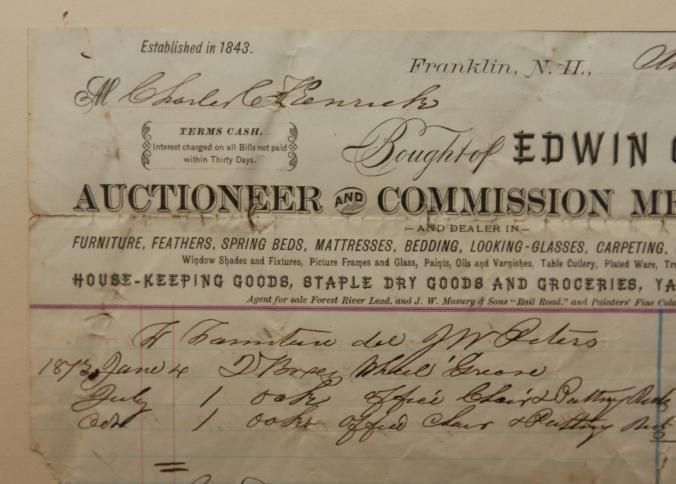 Established in 1843.
Franklin, N. H.,
M Charles C. Kenrick
TERMS CASH.
Interest charged on all Bills not paid
within Thirty Days.
Bought of EDWIN
AUCTIONEER AND COMMISSION ME
—AND DEALER IN—
FURNITURE, FEATHERS, SPRING BEDS, MATTRESSES, BEDDING, LOOKING-GLASSES, CARPETING,
Window Shades and Fixtures, Picture Frames and Glass, Paints, Oils and Varnishes, Table Cutlery, Plated Ware, Tr
HOUSE-KEEPING GOODS, STAPLE DRY GOODS AND GROCERIES, YA
Agent for sale Forest River Lead, and J. W. Masury & Sons "Rail Road," and Painters' Fine Colo
Furniture del J W Peters
1873 June 4 Boxes Wheel Grease
July 1 oak office Chair &
Oct 1 oak office Chair &